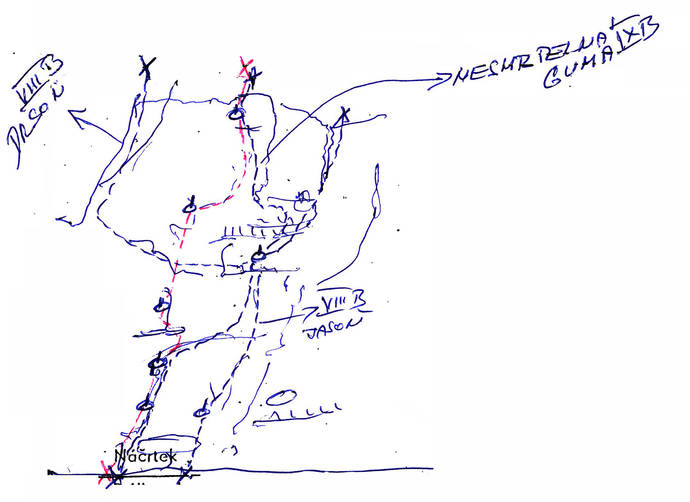 VIII B
DRSOŇ
NESMRTELNÁ
GUMA IXB
VIII B
JASOŇ
Náčrtek